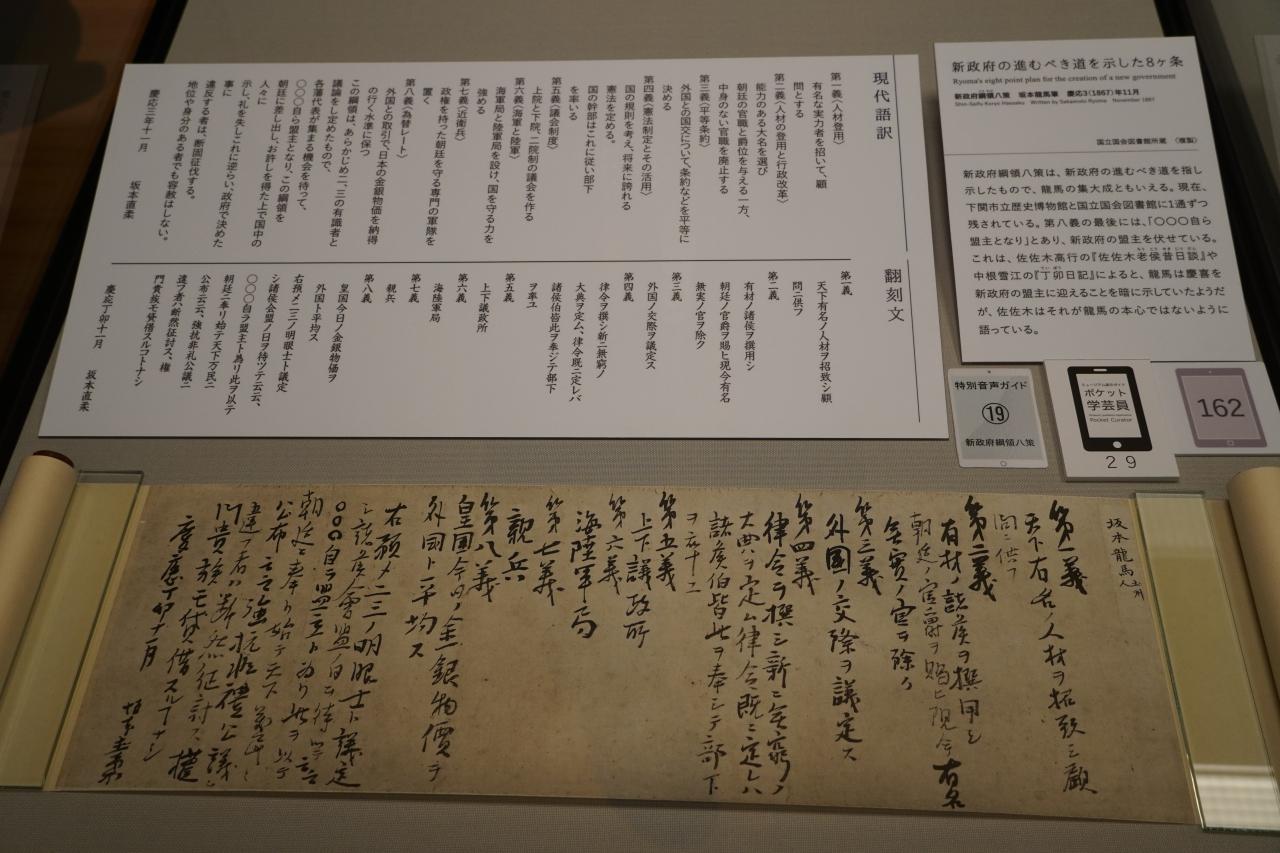 新政府の進むべき道を示した8ヶ条
Ryoma's eight point plan for the creation of a new government
新政府綱領八策　坂本龍馬筆　慶応3(1867)年11月
Shin-Seifu Koryo Hassaku　Written by Sakamoto Ryoma　November 1867
国立国会図書館所蔵　(複製)
新政府綱領八策は、新政府の進むべき道を指し
示したもので、龍馬の集大成ともいえる。現在、
下関市立歴史博物館と国立国会図書館に1通ずつ
残されている。第八義の最後には、「〇〇〇自ら
盟主となり」とあり、新政府の盟主を伏せている。
これは、佐佐木高行の『佐佐木老侯昔日談』や
中根雪江の『丁卯日記』によると、龍馬は慶喜を
新政府の盟主に迎えることを暗に示していたようだ
が、佐佐木はそれが龍馬の本心ではないように
語っている。
現代語訳
第一義〈人材登用〉
有名な実力者を招いて、顧
問とする
第二義〈人材の登用と行政改革〉
能力のある大名を選び
朝廷の官職と爵位を与える一方、
中身のない官職を廃止する
第三義〈平等条約〉
外国との国交について、条約などを平等に
決める
第四義〈憲法制定とその活用〉
国の規則を考え、将来に誇れる
憲法を定める。
国の幹部はこれに従い部下
を率いる
第五義〈議会制度〉
上院と下院、二院制の議会を作る
第六義〈海軍と陸軍〉
海軍局と陸軍局を設け、国を守る力を
強める
第七義〈近衛兵〉
政権を持った朝廷を守る専門の軍隊を
置く
第八義〈為替レート〉
外国との取引で、日本の金銀物価を納得
の行く水準に保つ
この綱領は、あらかじめ二、三の有識者と
議論をし定めたもので、
各藩代表が集まる機会を待って、
〇〇〇自ら盟主となり、この綱領を
朝廷に差し出し、お許しを得た上で国中の
人々に
示し、礼を失しこれに逆らい、政府で決めた
事に
違反する者は、断固征伐する。
地位や身分のある者でも容赦はしない。
慶応三年十一月　坂本直柔
翻刻文
第一義
天下有名ノ人材ヲ招致シ顧
問ニ供フ
第二義
有材ノ諸侯ヲ撰用シ
朝廷ノ官爵ヲ賜ヒ現今有名
無実ノ官ヲ除ク
第三義
外国ノ交際ヲ議定ス
第四義
律令ヲ撰シ新ニ無窮ノ
大典ヲ定ム、律令既ニ定レバ
諸侯伯皆此ヲ奉ジテ部下
ヲ率ユ
第五義
上下議政所
第六義
海陸軍局
第七義
親兵
第八義
皇国今日ノ金銀物価ヲ
外国ト平均ス
右預メ二三ノ明眼士ト議定
シ諸侯会盟ノ日ヲ待ツテ云云、
〇〇〇自ラ盟主ト為リ此ヲ以テ
朝廷ニ奉リ始テ天下万民ニ
公布云云、強抗非礼公議ニ
違フ者ハ断然征討ス、権
門貴族モ貸借スルコトナシ
慶応丁卯十一月　坂本直柔
特別音声ガイド
⑲
新政府綱領八策
ポケット
学芸員
Pocket Curator
29
162
坂本龍馬
第一義
天下有名ノ人材ヲ招致シ顧
問ニ供フ
第二義
有材ノ諸侯ヲ撰用シ
朝廷ノ官爵ヲ賜ヒ現今有名
無實ノ官ヲ除ク
第三義
外國ノ交際ヲ議定ス
第四義
律令ヲ撰シ新ニ無窮ノ
大典ヲ定ム律令既ニ定レハ
諸侯伯皆此ヲ奉シテ部下
ヲ率ユ
第五義
上下議政所
第六義
海陸軍局
第七義
親兵
第八義
皇國今日ノ金銀物價ヲ
外國ト平均ス
右預メ二三ノ明眼士ト議定
シ諸侯會盟ノ日ヲ待ツテ云云
〇〇〇自ラ盟主ト為リ此ヲ以テ
朝廷ニ奉リ始テ天下萬民ニ
公布云云強抗非禮公議ニ
違フ者ハ断然征討ス權
門貴族モ貸借スルコトナシ
慶應丁卯十一月
坂本直柔